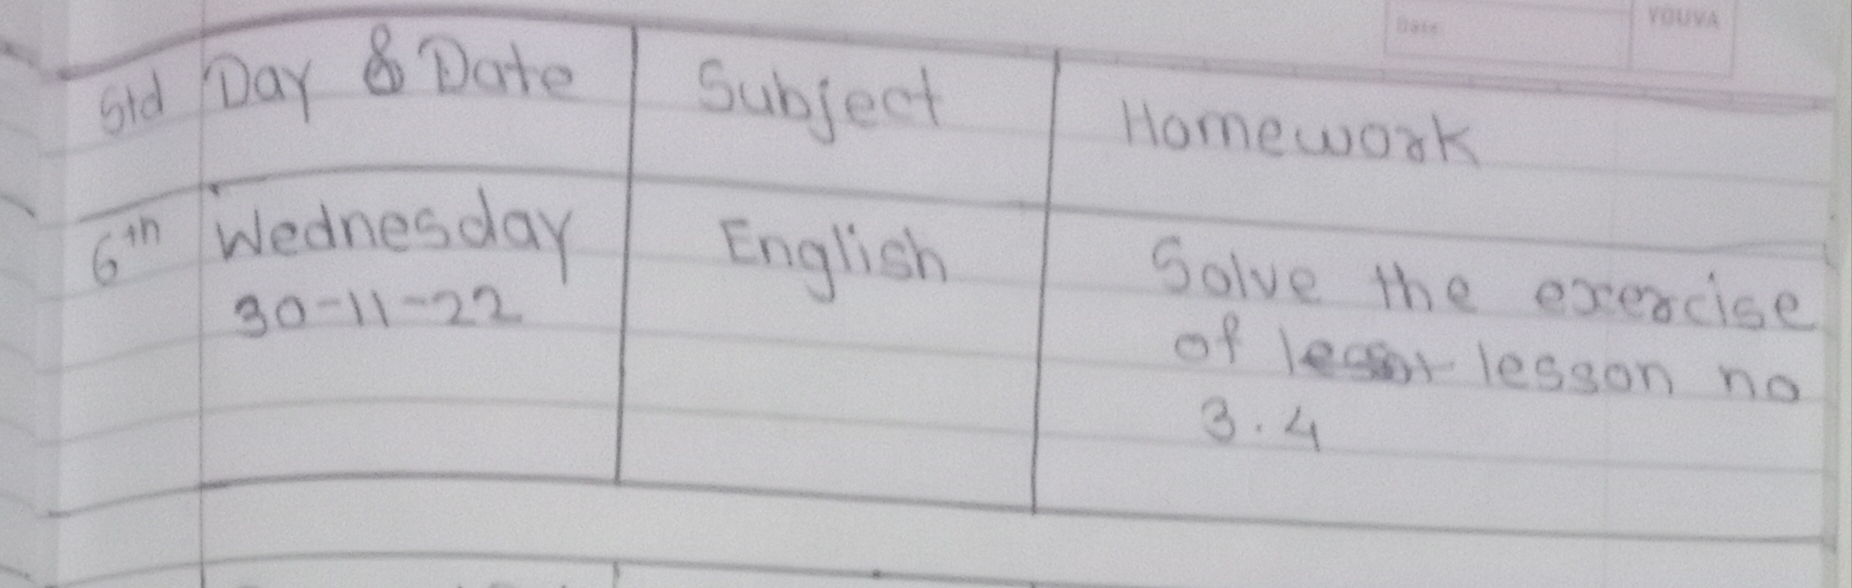 Date
YOUVA
Std Day & Date Subject Homework
6th Wednesday English Solve the exercise
30-11-22 of lesson no
3.4